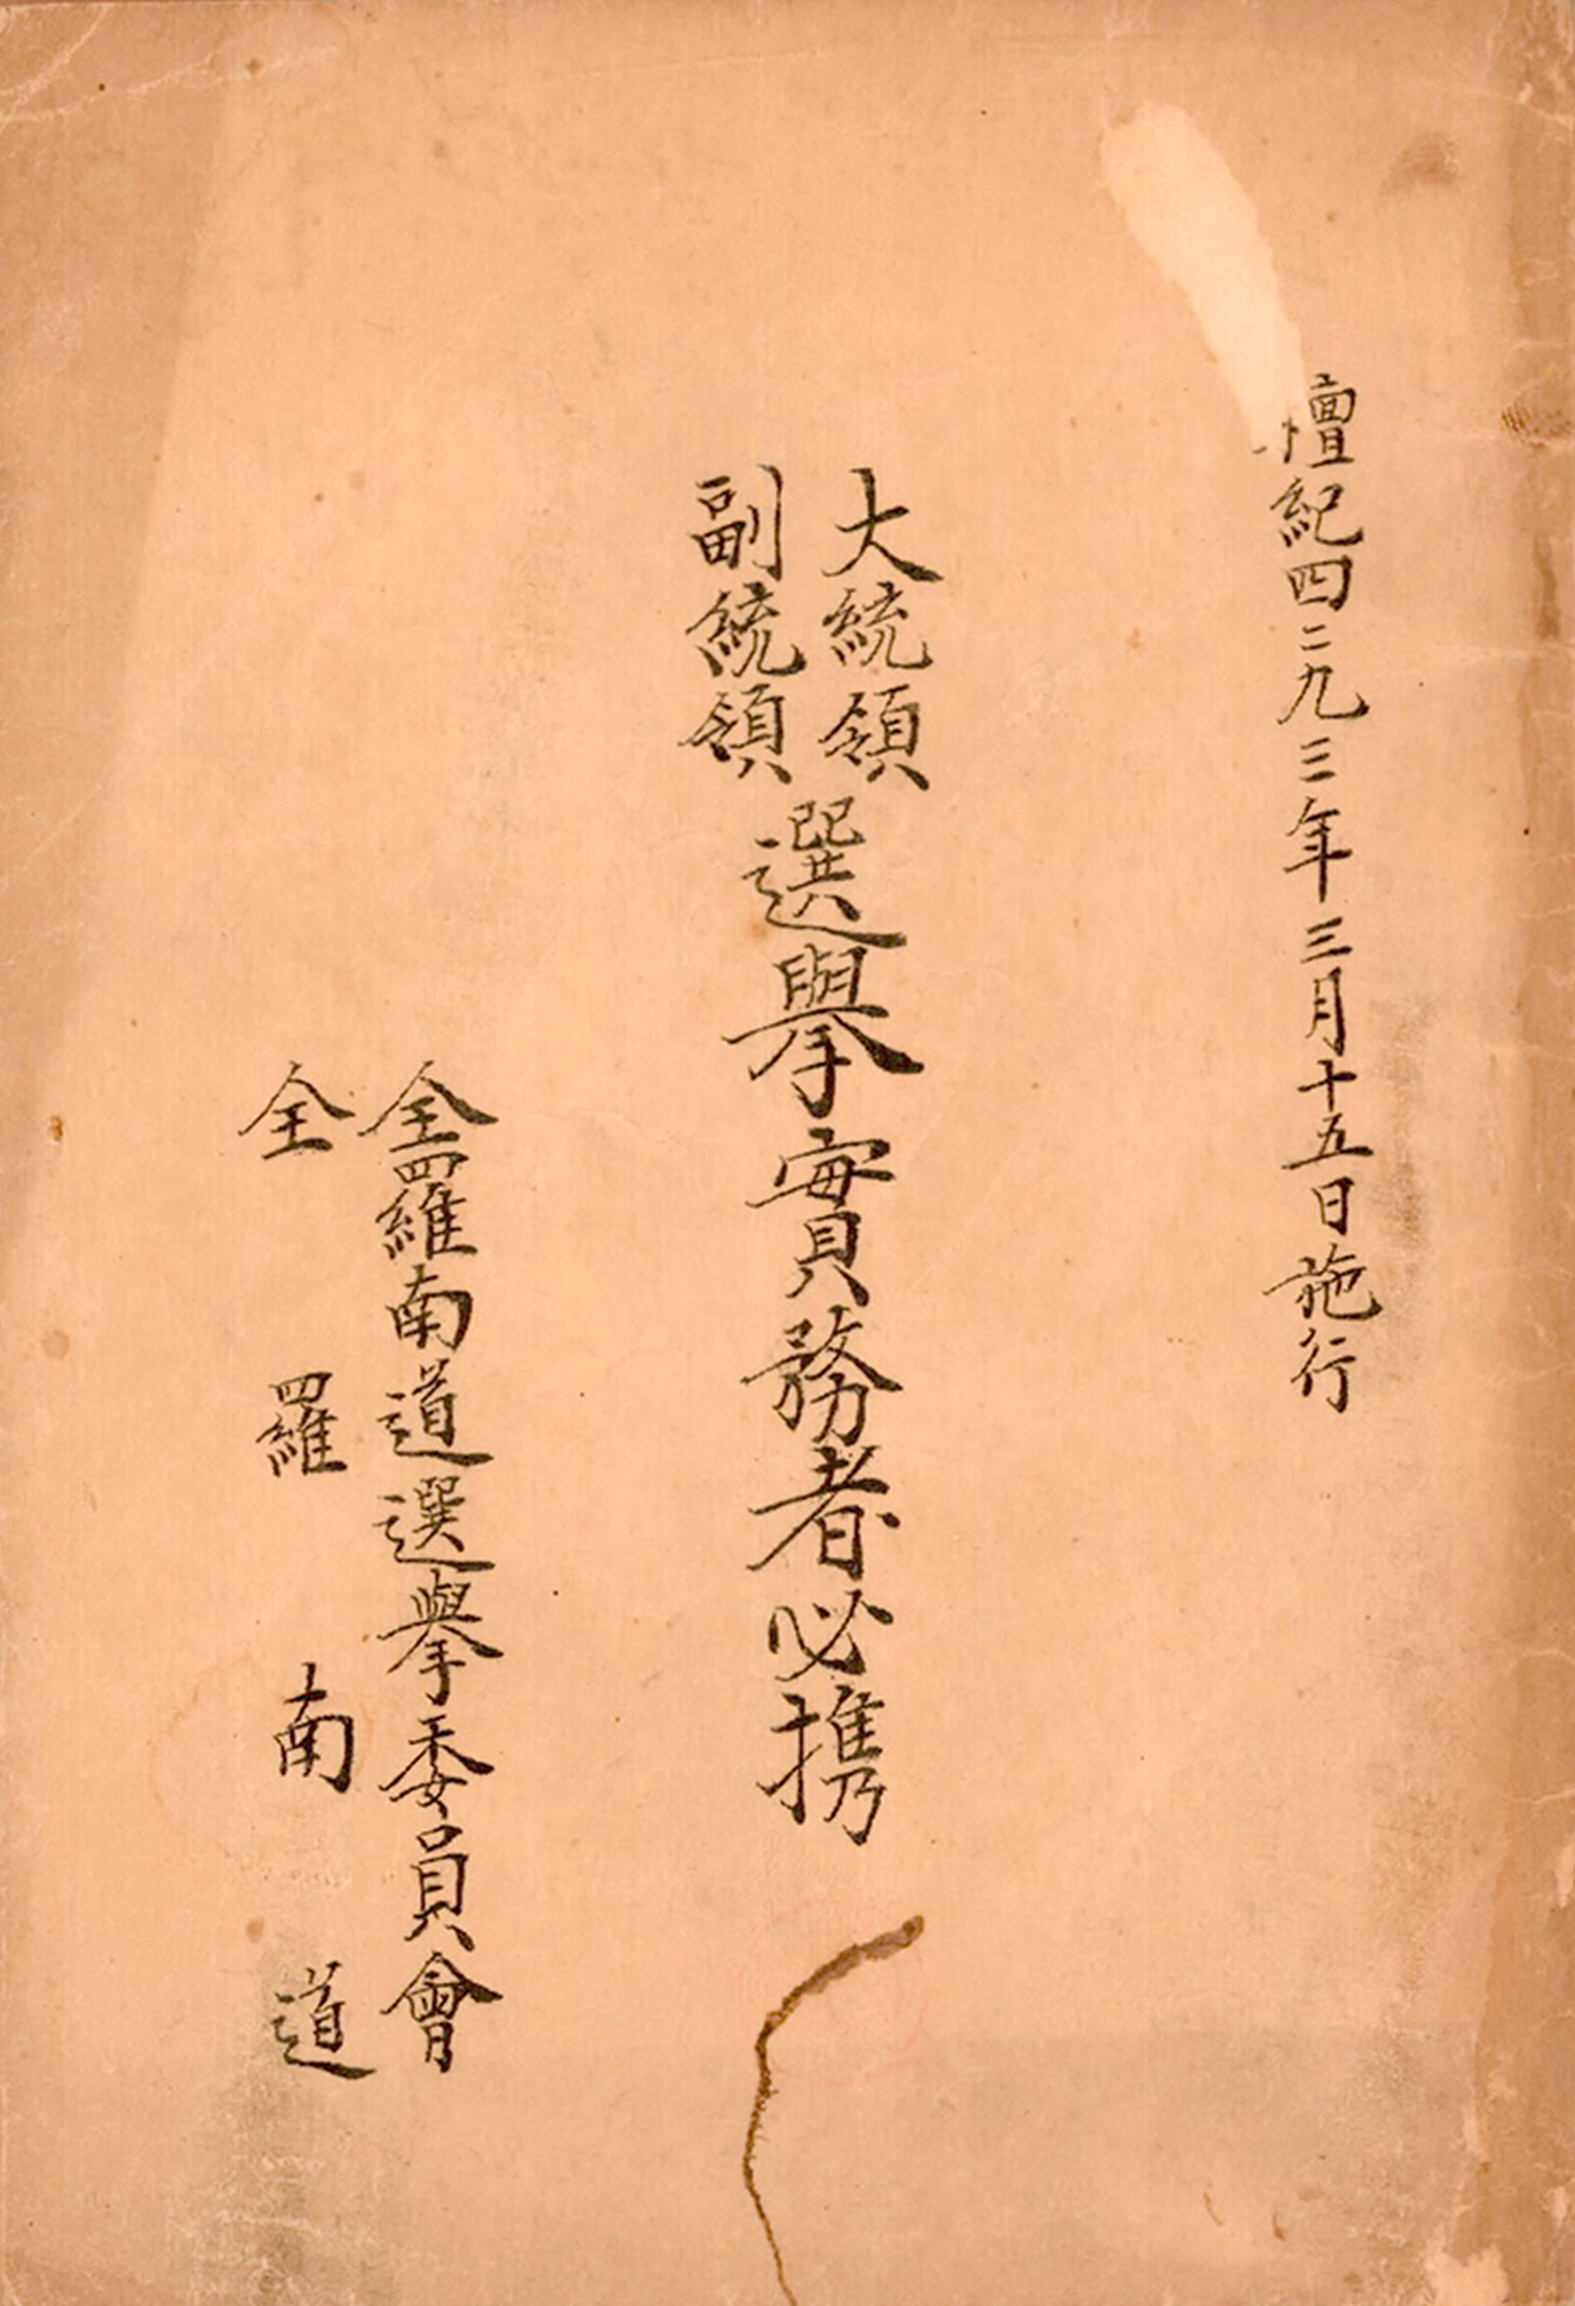 檀紀四二九三年三月十五日施行
大統領
副統領
選擧實務者必携
全羅南道選擧委員會
全羅南道